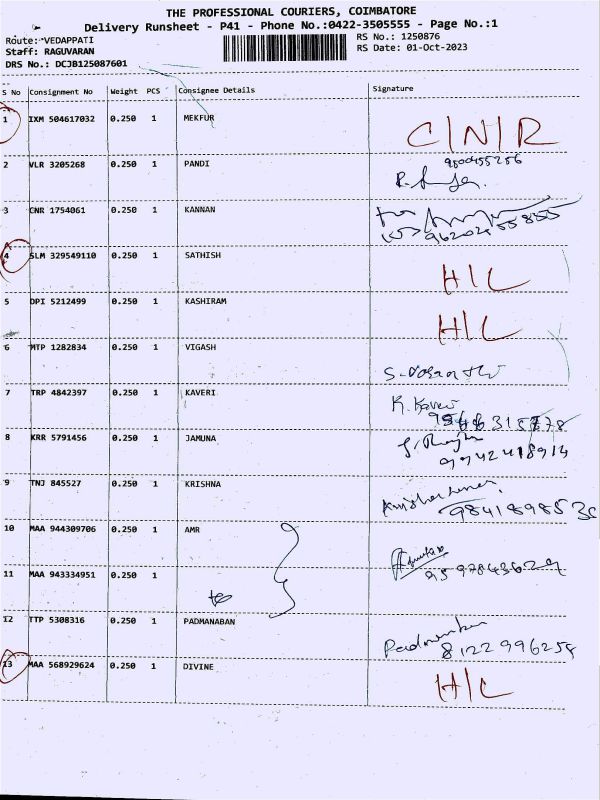 THE PROFESSIONAL COURIERS, COIMBATORE
Delivery Runsheet - P41 - Phone No.:0422-3505555 - Page No.:1
Route: VEDAPPATI RS No.: 1250876
Staff: RAGUVARAN RS Date: 01-Oct-2023
DRS No.: DCJB125087601
S No Consignment No Weight PCS Consignee Details Signature
1 IXM 504617032 0.250 1 MEKFUR C/N/R
2 VLR 3205268 0.250 1 PANDI
3 CNR 1754061 0.250 1 KANNAN
4 SLM 329549110 0.250 1 SATHISH H/C
5 DPI 5212499 0.250 1 KASHIRAM H/C
6 MTP 1282834 0.250 1 VIGASH
7 TRP 4842397 0.250 1 KAVERI
8 KRR 5791456 0.250 1 JAMUNA
9942418914
9 TNJ 845527 0.250 1 KRISHNA
10 MAA 944309706 0.250 1 AMR
11 MAA 943334951 0.250 1
12 TTP 5308316 0.250 1 PADMANABAN
8122996258
13 MAA 568929624 0.250 1 DIVINE H/C